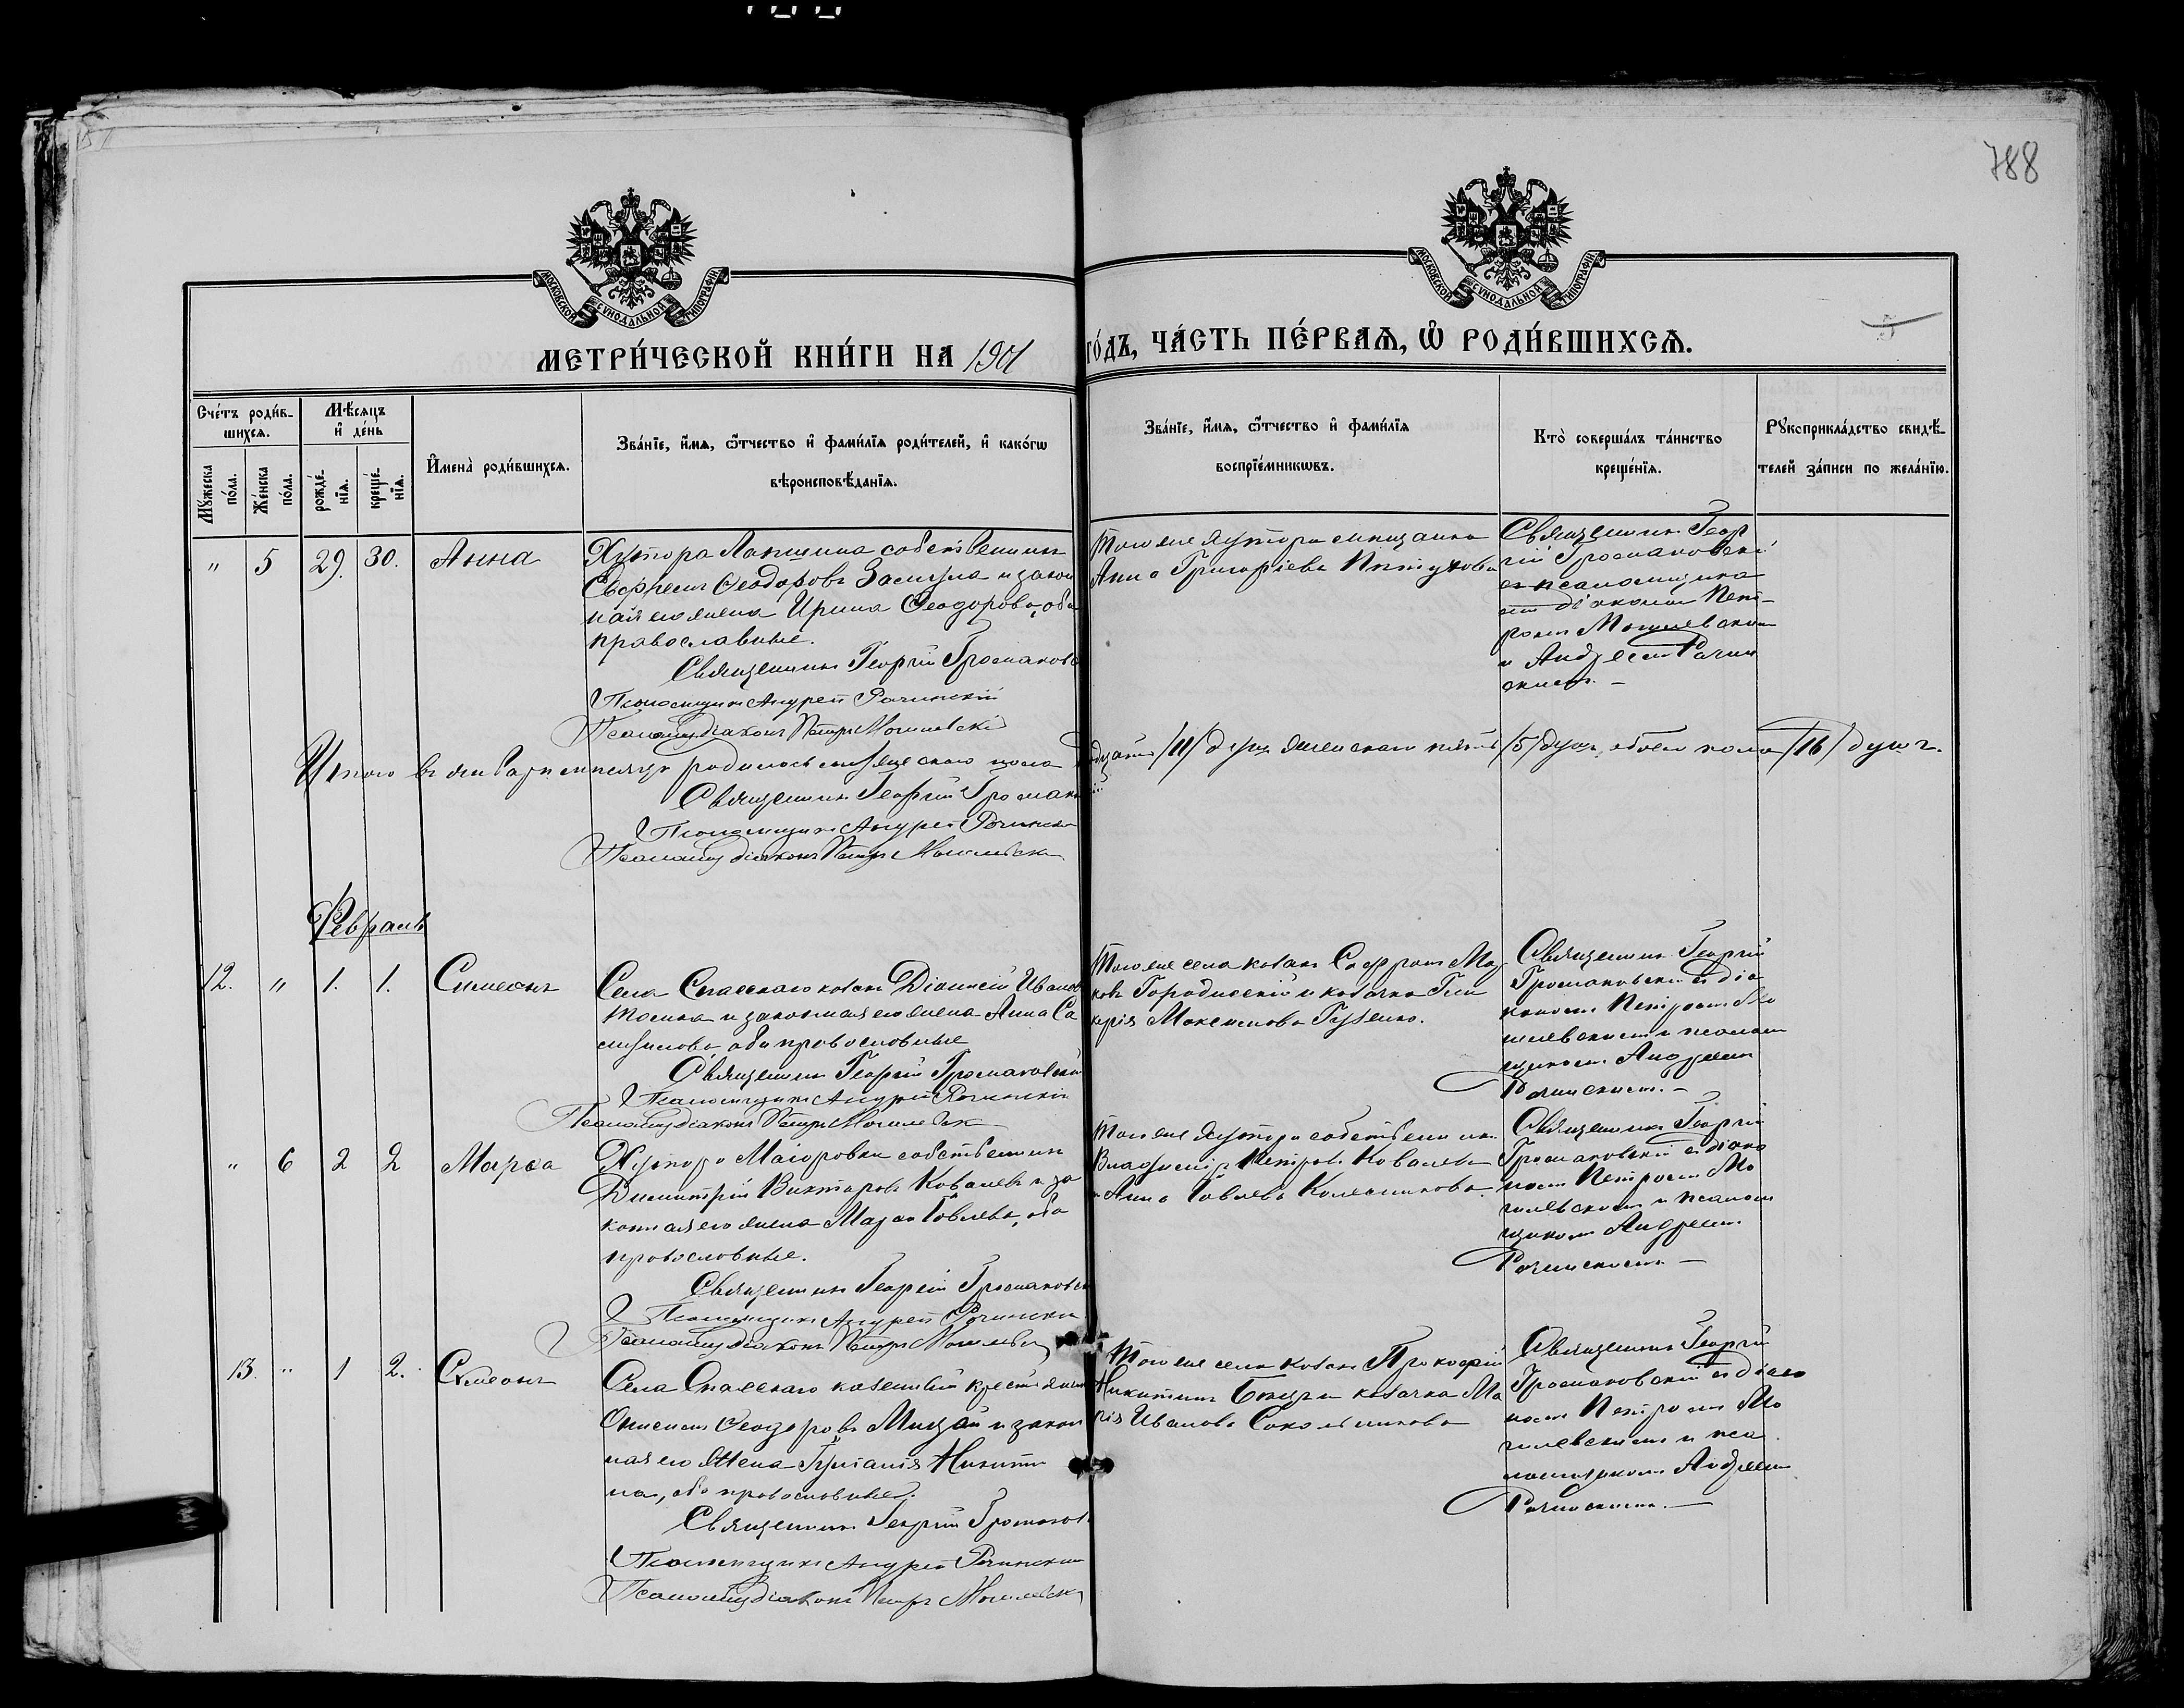 788
МОСКОВСКОЙ СУНОДАЛЬНОЙ ТИПОГРАФІИ
МОСКОВСКОЙ СУНОДАЛЬНОЙ ТИПОГРАФІИ
МЕТРИ́ЧЕСКОЙ КНИ́ГИ НА 1901 ГО́ДЪ, ЧА́СТЬ ПЕ́РВАѦ, Ѽ РОДИ́ВШИХСѦ.
Сче́тъ роди́в-
шихсѧ.
Мꙋжеска
по́ла.
Же́нска
по́ла.
Мѣ́сѧцъ
и҆ де́нь
рожде́-
нїѧ.
креще́-
нїѧ.
И҆мена̀ роди́вшихсѧ.
Зва́нїе, и҆́мѧ, ѻ҆́тчество и҆ фами́лїѧ роди́телей, и҆ како́гѡ
вѣроисповѣ́данїѧ.
Зва́нїе, и҆́мѧ, ѻ҆́тчество и҆ фами́лїѧ
воспрїе́мникѡвъ.
Кто̀ соверша́лъ та́инство
креще́нїѧ.
Рꙋкоприкла́дство свидѣ́-
телей за́писи по жела́нїю.
" 5 29. 30. Анна
Хутора Лапшина собственникъ
Ефремъ Ѳеодоровъ и закон
ная его жена Ирина Ѳеодорова, оба
православные.
Священникъ Георгій Громаковс
Псаломщикъ Андрей Рачинскій
Псаломщ діаконъ Петръ Могилевскій
Того же хутора мещанка
Анна Григоріева Петухова
Священникъ Геор
гій Громаковскій
съ псаломщика
ми діакономъ Пет-
ромъ Могилевскимъ
и Андреемъ Рачин
скимъ. –
Итого въ январѣ мѣсяцѣ родилось мужескаго пола одинадцать /11/ душ женскаго пять /5/ душъ, обоего пола /16/ душъ.
Священникъ Георгій Громаков
Псаломщикъ Андрей Рачински
Псаломщ діаконъ Петръ Могилевскі
Февраль
12. " 1. 1. Симеонъ
Села Спасскаго козакъ Діонисій Иванов
и законная его жена Анна Са
муилова оба православные
Священникъ Георгій Громаковскій
Псаломщикъ Андрей Рачинскій
Псаломщ діаконъ Петръ Могилевск
Того же села козакъ Софронъ Мар
ковъ Городискій и козачка Гли
керія Максимова Гузенко.
Священникъ Георгій
Громаковскій съ діа
кономъ Петромъ Мо
гилевскимъ и псалом
щикомъ Андреемъ
Рачинскимъ. –
" 6 2 2 Марѳа
Хутора Маіоровки собственникъ
Димитрій Викторовъ Ковалевъ и за
конная его жена Марѳа , оба
православные.
Священникъ Георгій Громаковск
Псаломщикъ Андрей Рачински
Псаломщ діаконъ Петръ Могилевск
Того же хутора собственники
Владиміръ Петровъ Ковалевъ
и Анна Колесникова.
Священникъ Георгій
Громаковскій съ діако
номъ Петромъ Мо
гилевскимъ и псалом
щикомъ Андреемъ
Рачинскимъ. –
13. " 1 2. Сѵмеонъ
Села Спасскаго казенный крестьянин
Ѳеодоровъ и закон
ная его жена Никити
на, оба православные.
Священникъ Георгій Громаков
Псаломщикъ Андрей Рачински
Псаломщ діаконъ Петръ Могилевск
Того же села козакъ Прокофій
Никитинъ и козачка Ма
рія Иванова Сокольникова
Священникъ Георгій
Громаковскій съ діако
номъ Петромъ Мо
гилевскимъ и пса
ломщикомъ Андреемъ
Рачинскимъ. –